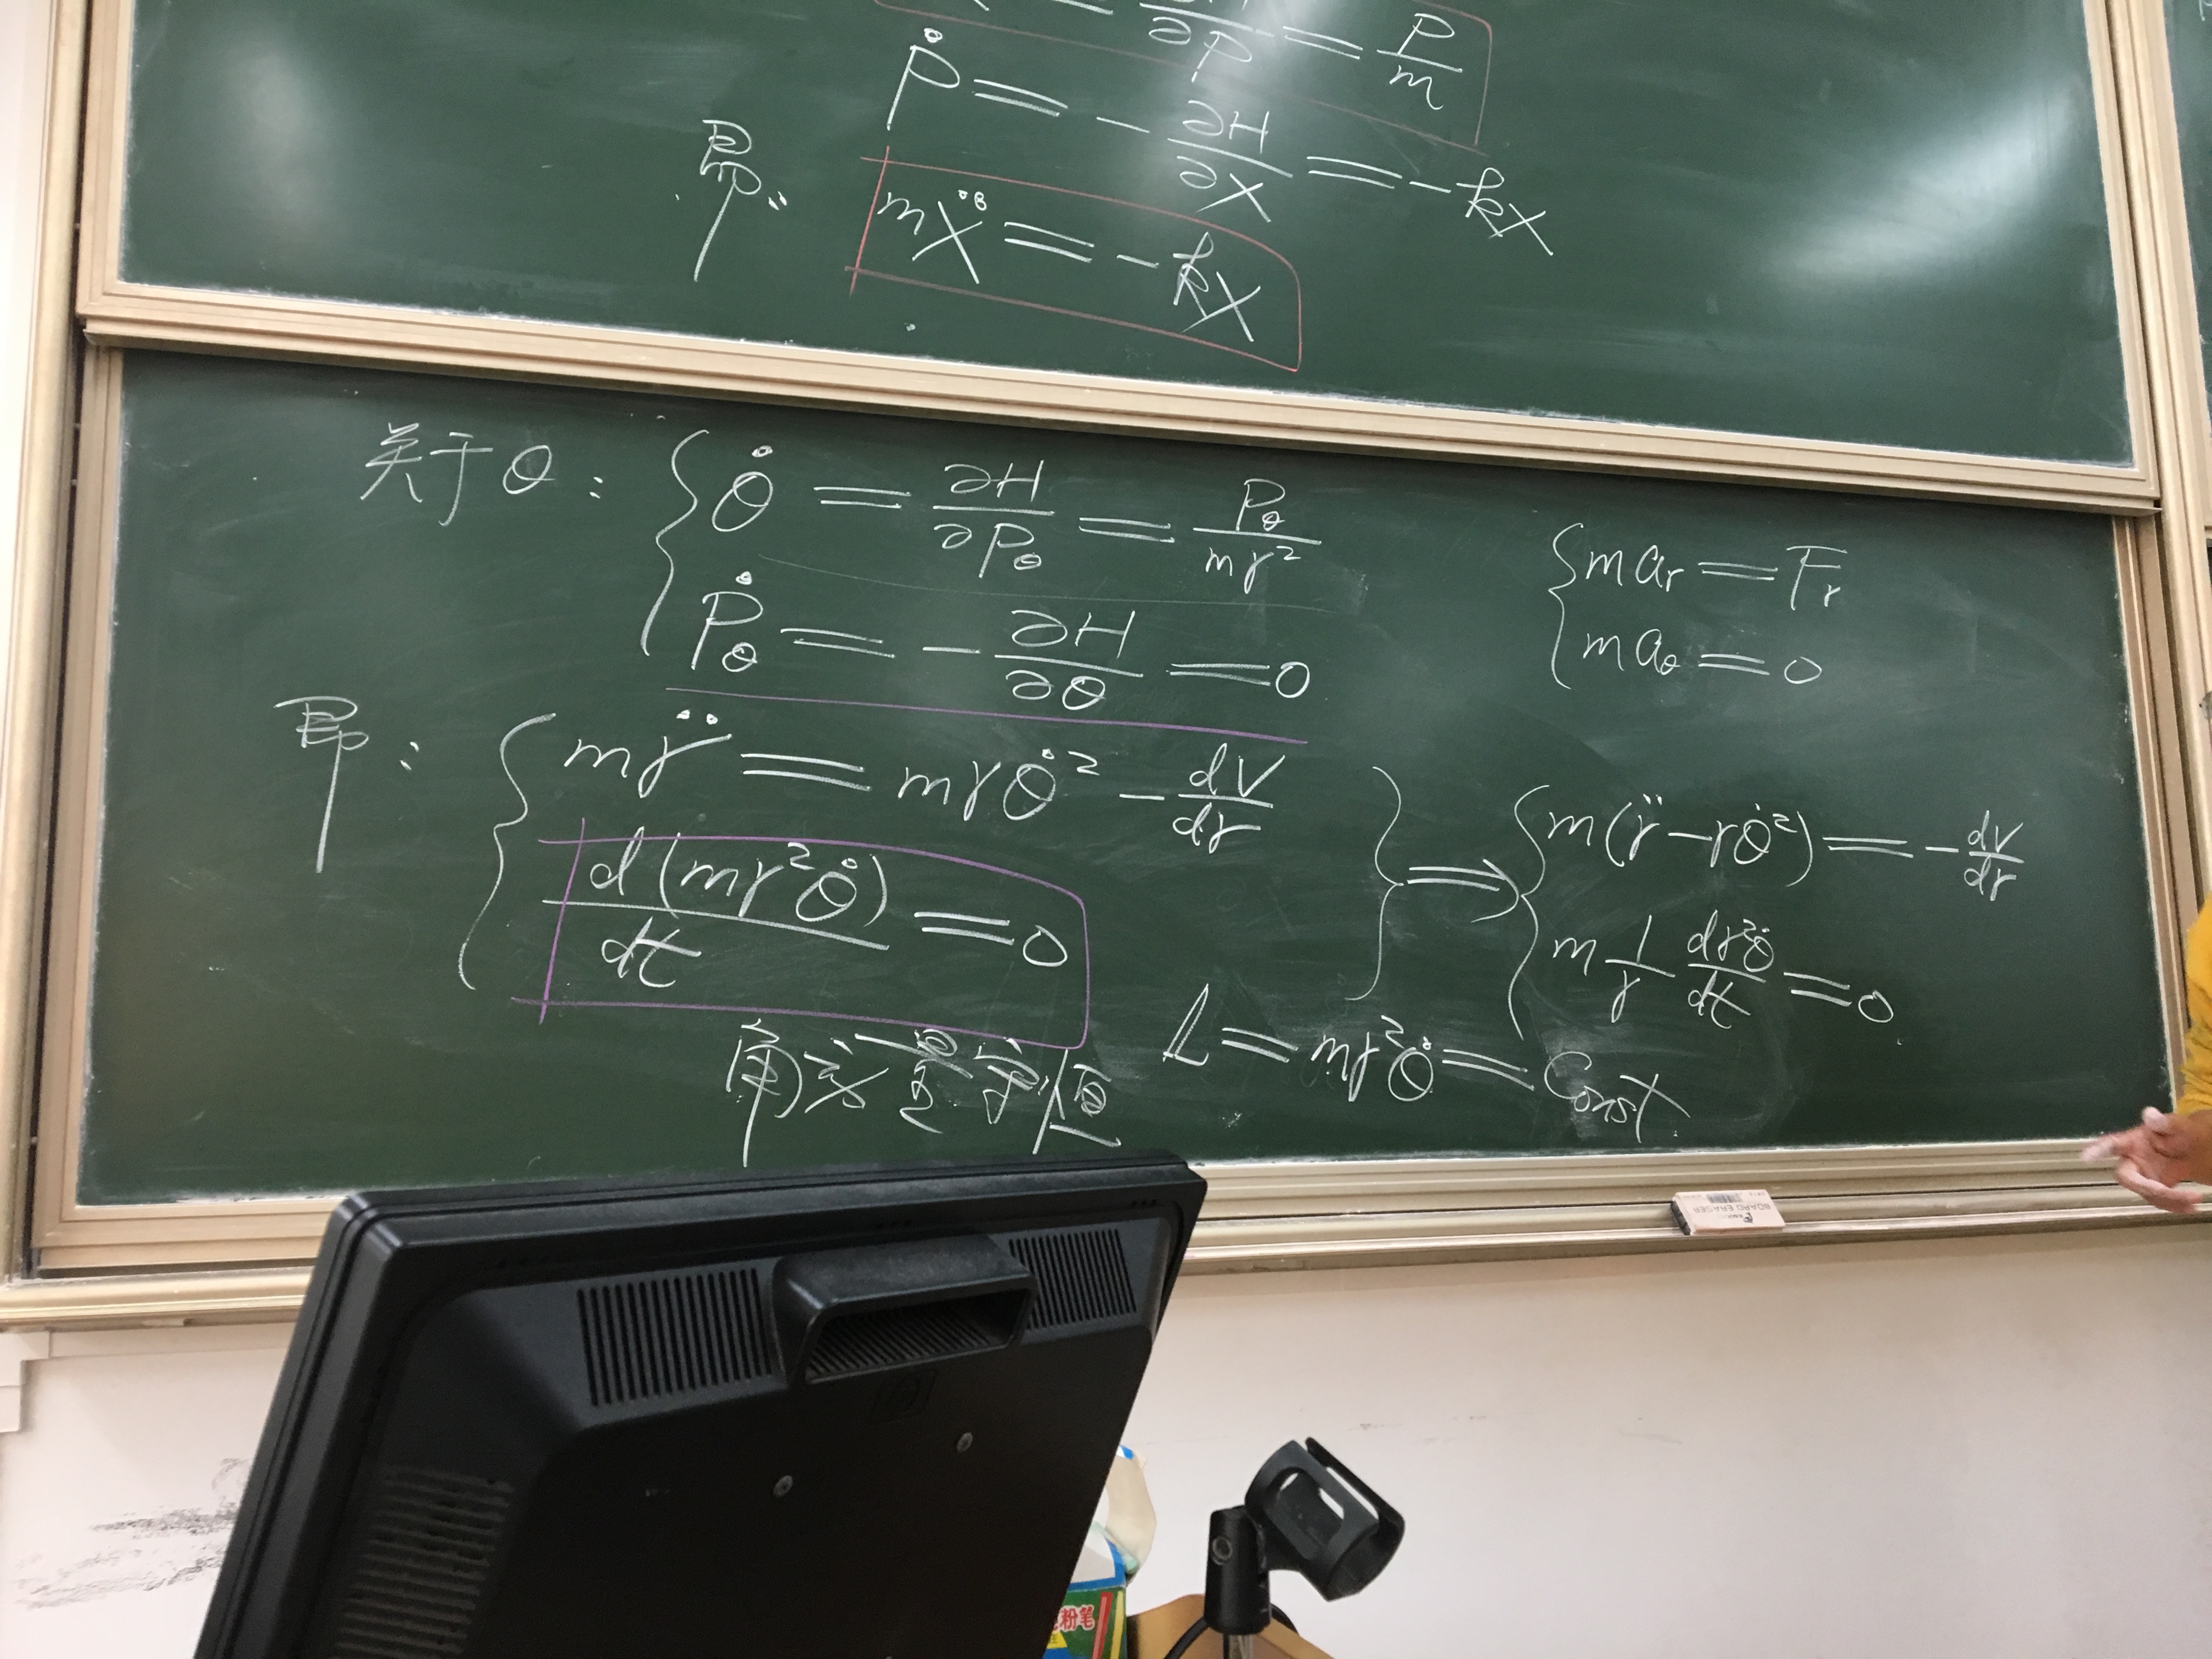 = ∂H/∂P = P/m
Ṗ = -∂H/∂X = -kX
即:
mẌ = -kX
关于θ:
θ̇ = ∂H/∂Pθ = Pθ/mr²
Ṗθ = -∂H/∂θ = 0
{ mar = Fr
maθ = 0
即:
{ mr̈ = mrθ̇² - dV/dr
d(mr²θ̇)/dt = 0
} ⇒ { m(r̈ - rθ̇²) = -dV/dr
m 1/r dr²θ̇/dt = 0
角动量守恒 L = mr²θ̇ = Const
BOARD ERASER
粉笔